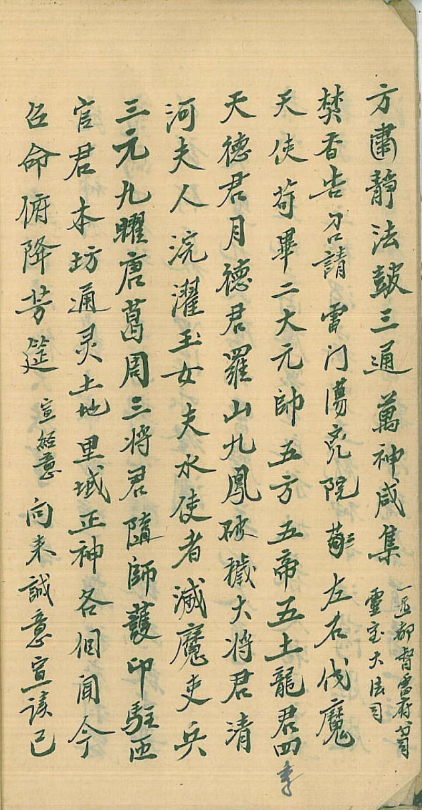 方肅靜法鼓三通萬神咸集 一正都督雷府
靈宝大法司
焚香告召請雷门蕩兇院 左右伐魔
天使苟畢二大元帥五方五帝五土龍君四季
天德君月德君羅山九鳳破穢大将君清
河夫人浣濯玉女夫水使者滅魔吏兵
三元九曜唐葛周三将君隨師護印駐
官君本坊通灵土地里域正神各佀闻今
召命俯降芳筵 宣始意 向来誠意宣讀已